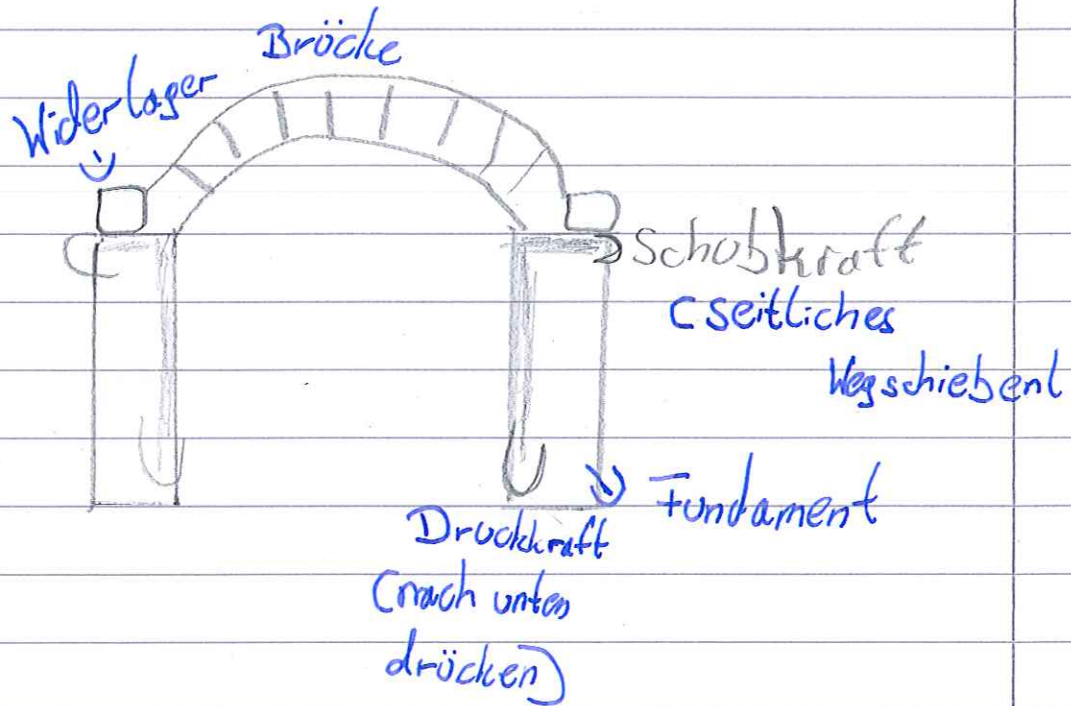 Brücke
Widerlager
Schubkraft
(seitliches
Wegschieben)
Fundament
Druckkraft
(nach unten
drücken)